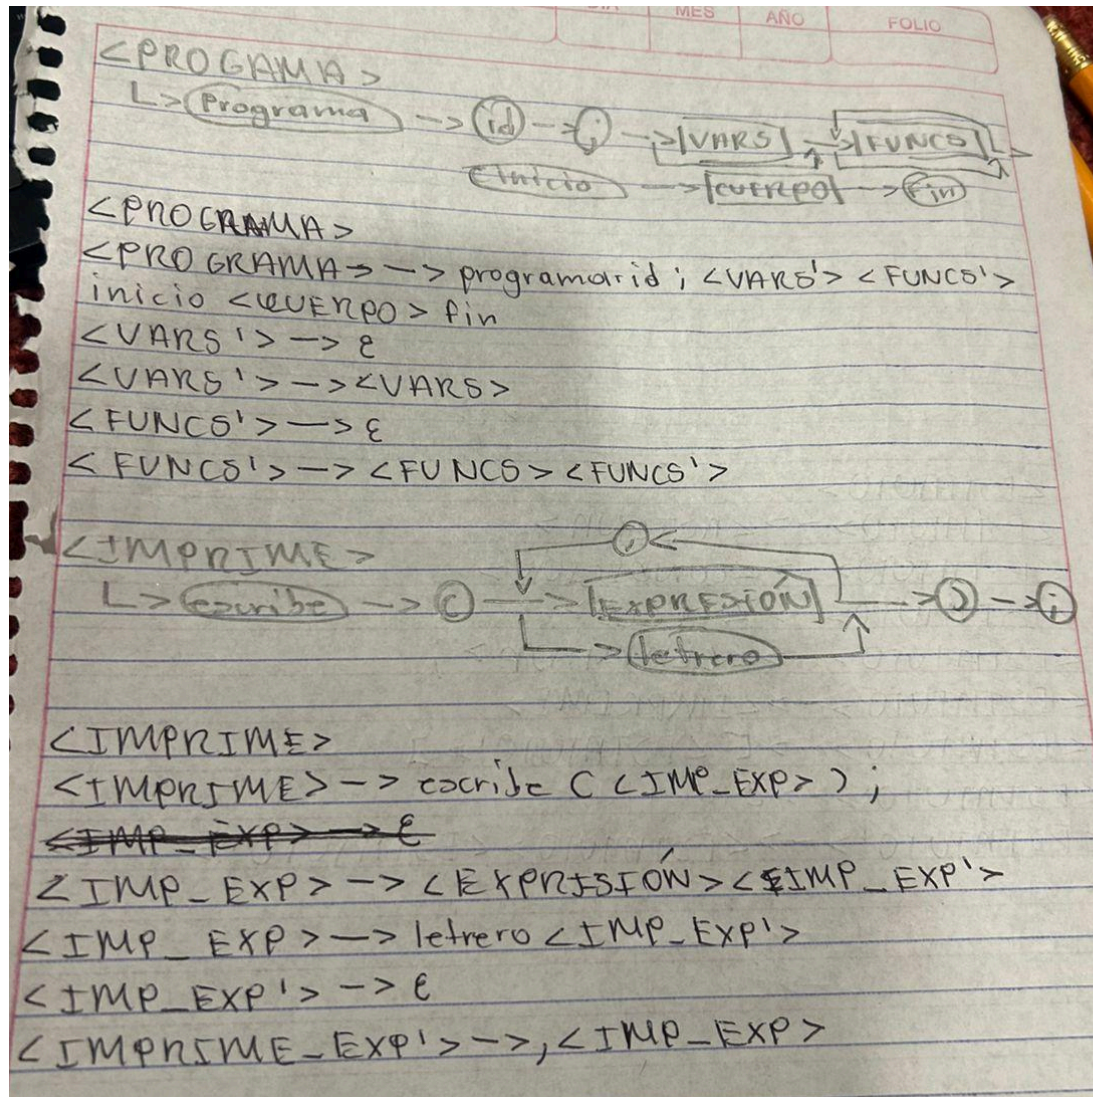 MES AÑO FOLIO
<PROGAMA>
L> programa -> id -> ; -> |VARS| -> |FUNCS| ->
inicio -> |CUERPO| -> fin
<PROGRAMA>
<PROGRAMA> -> programa id ; <VARS'> <FUNCS'>
inicio <CUERPO> fin
<VARS'> -> ε
<VARS'> -> <VARS>
<FUNCS'> -> ε
<FUNCS'> -> <FUNCS> <FUNCS'>
<IMPRIME>
,
L> escribe -> ( -> |EXPRESIÓN| -> ) -> ;
-> letrero
<IMPRIME>
<IMPRIME> -> escribe ( <IMP_EXP> ) ;
<IMP_EXP> -> ε
<IMP_EXP> -> <EXPRESIÓN> <IMP_EXP'>
<IMP_EXP> -> letrero <IMP_EXP'>
<IMP_EXP'> -> ε
<IMPRIME_EXP'> -> , <IMP_EXP>